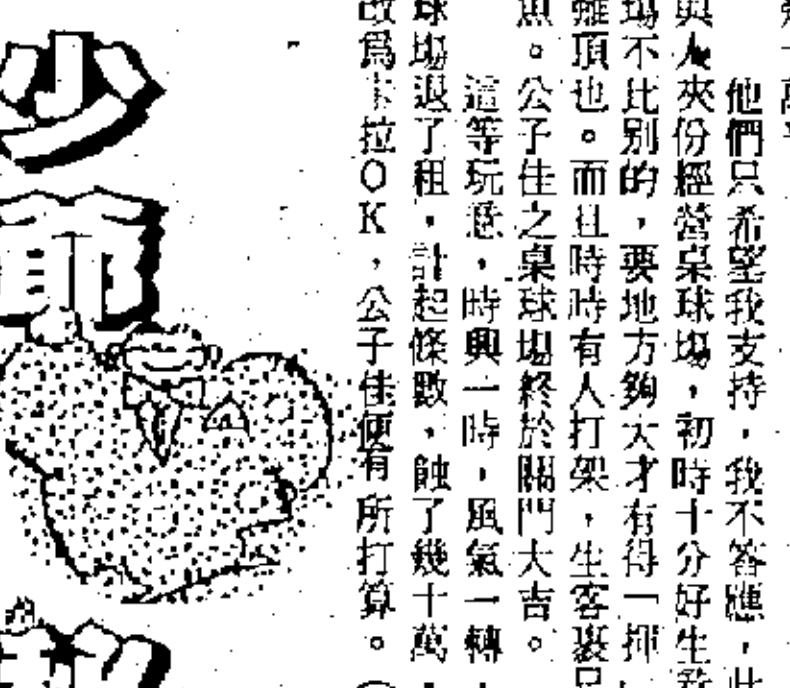 他們只希望我支持，我不答應，此
與人夾份經營桌球場，初時十分好生
場不比別的，要地方夠大才有得一揮
離頂也。而且時時有人打架，生客裹足
魚。公子佳之桌球場終於關門大吉。
這等玩意，時興一時，風氣一轉，
球場退了租，計起條數，蝕了幾十萬，
改為卡拉OK，公子佳便有所打算。
少爺